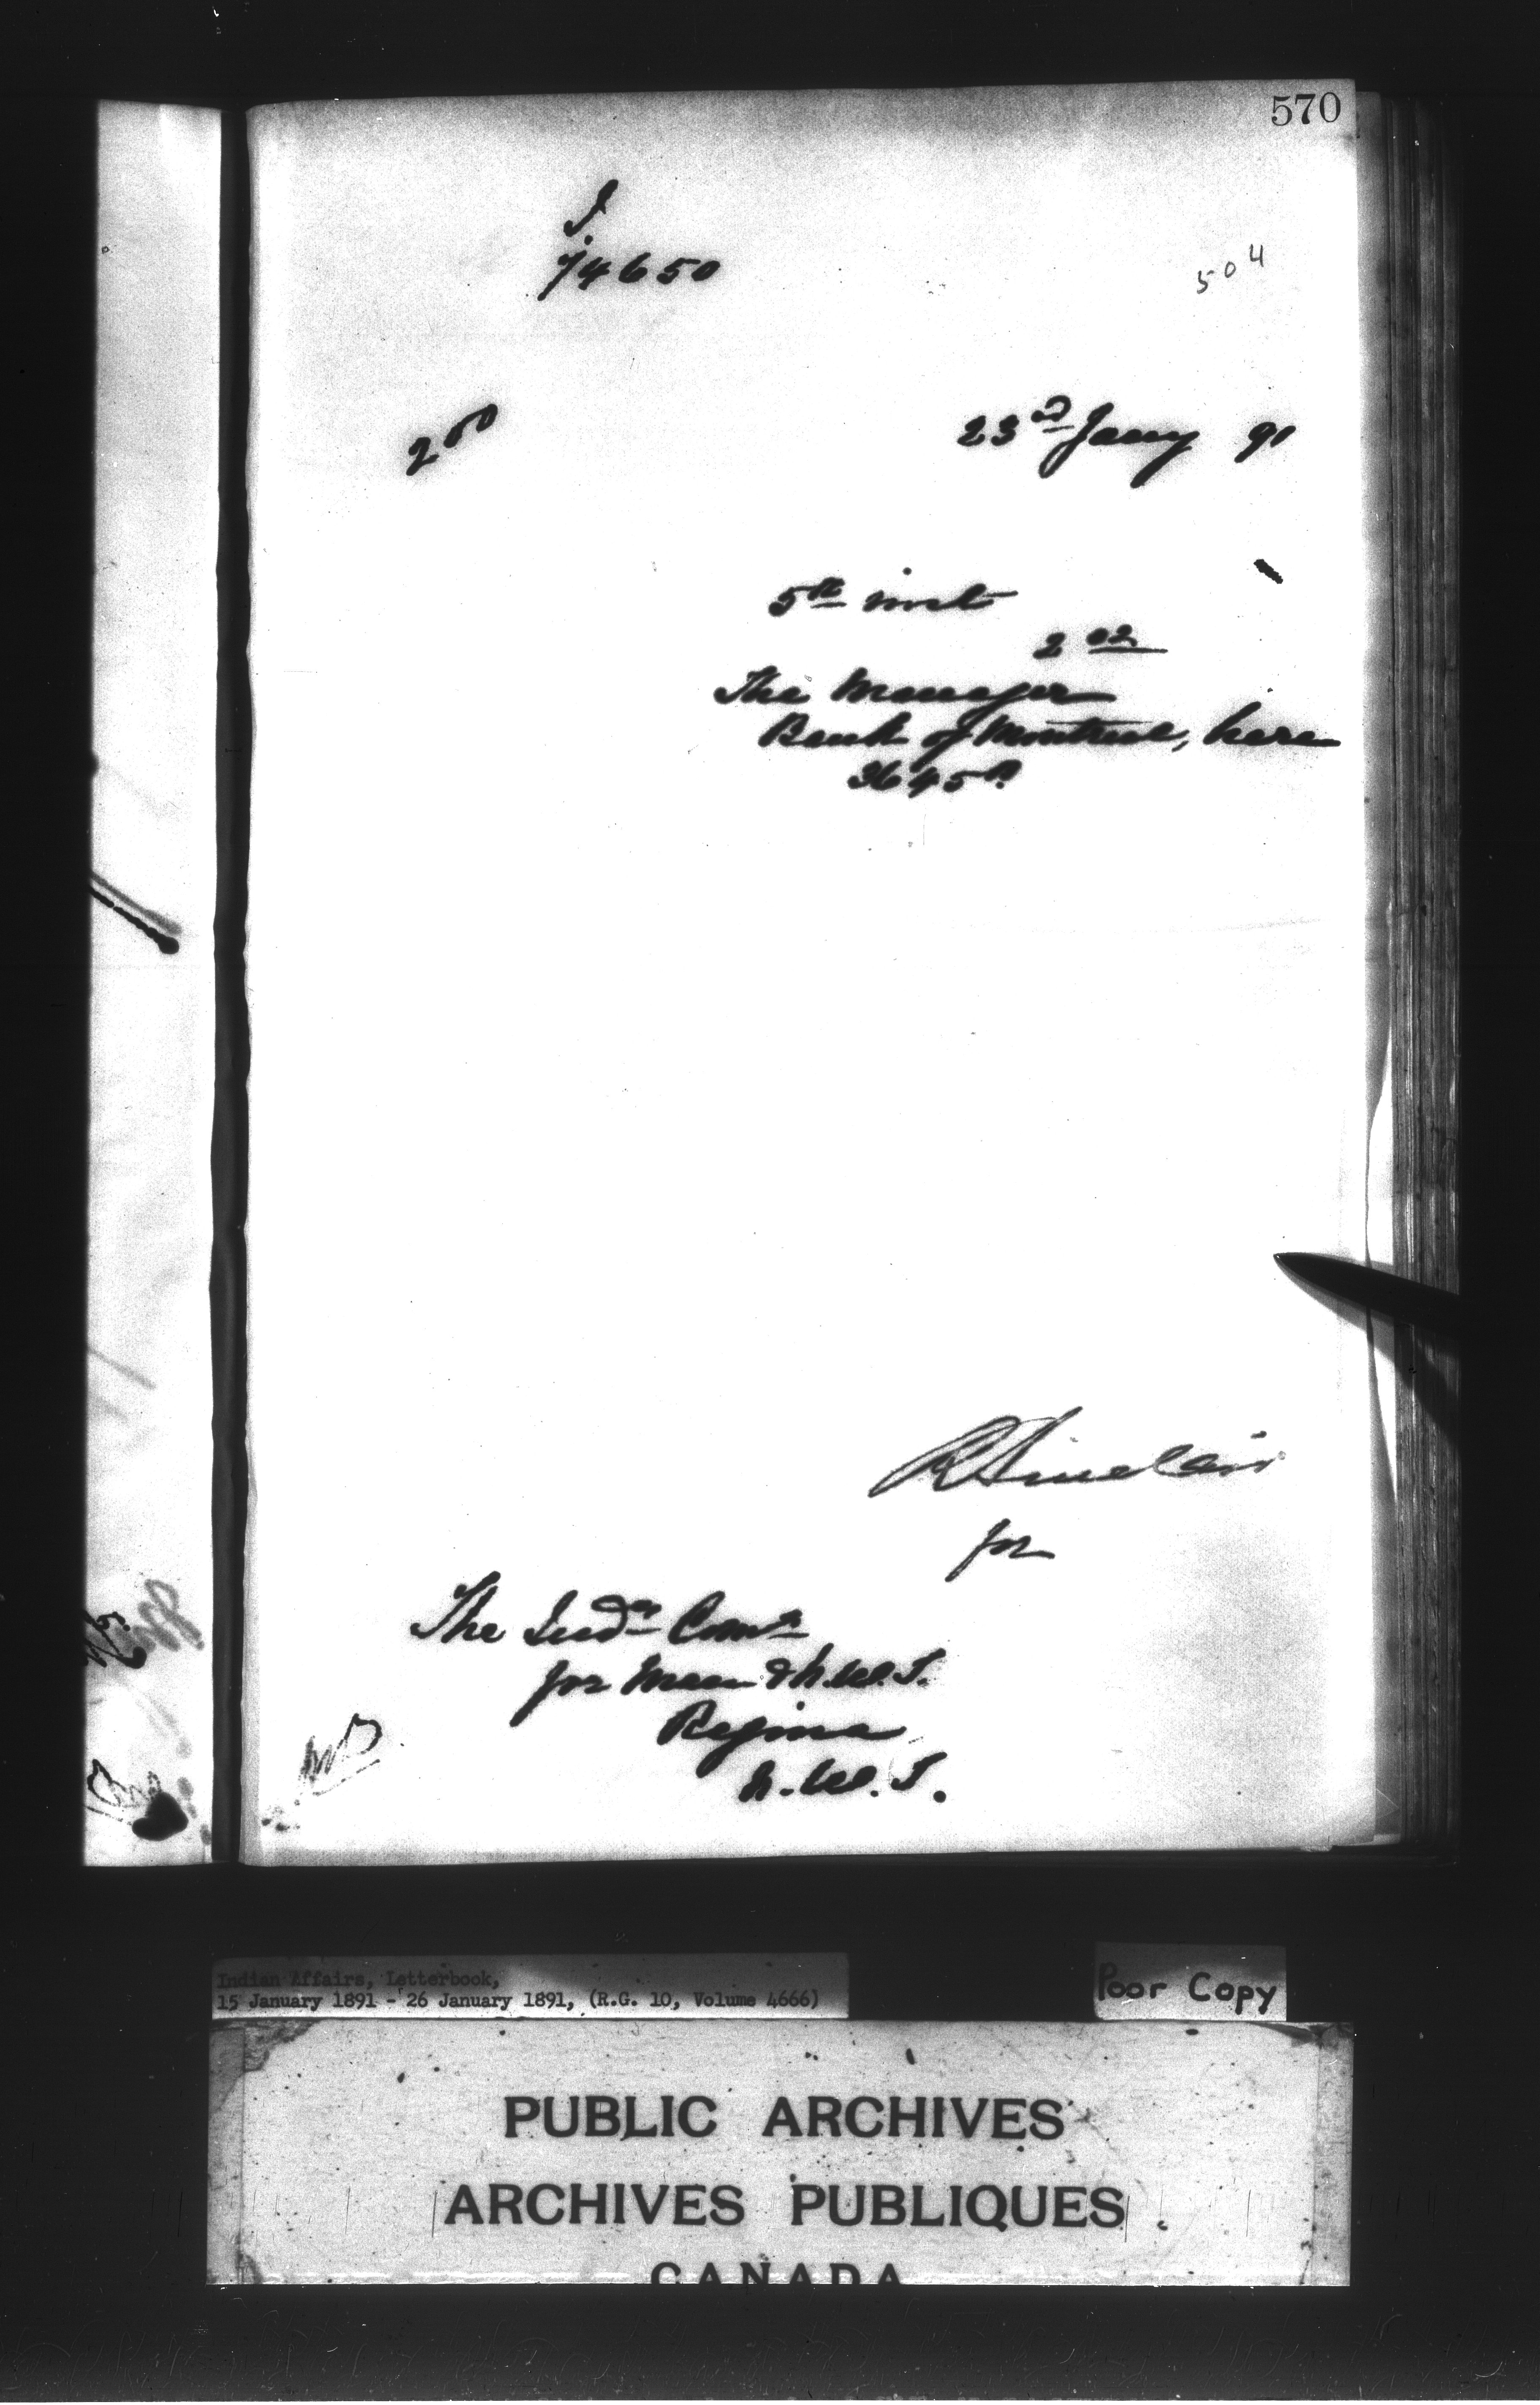 570
I.
74650
504
2 00
23rd Jany 91
5th inst
2 02
The Manager
Bank of Montreal, here
3645
R Sinclair
for
The Indn Comr
for Man & N.W.T.
Regina
N.W.T.
Indian Affairs, Letterbook,
15 January 1891 - 26 January 1891, (R.G. 10, Volume 4666)
Poor Copy
PUBLIC ARCHIVES
ARCHIVES PUBLIQUES
CANADA